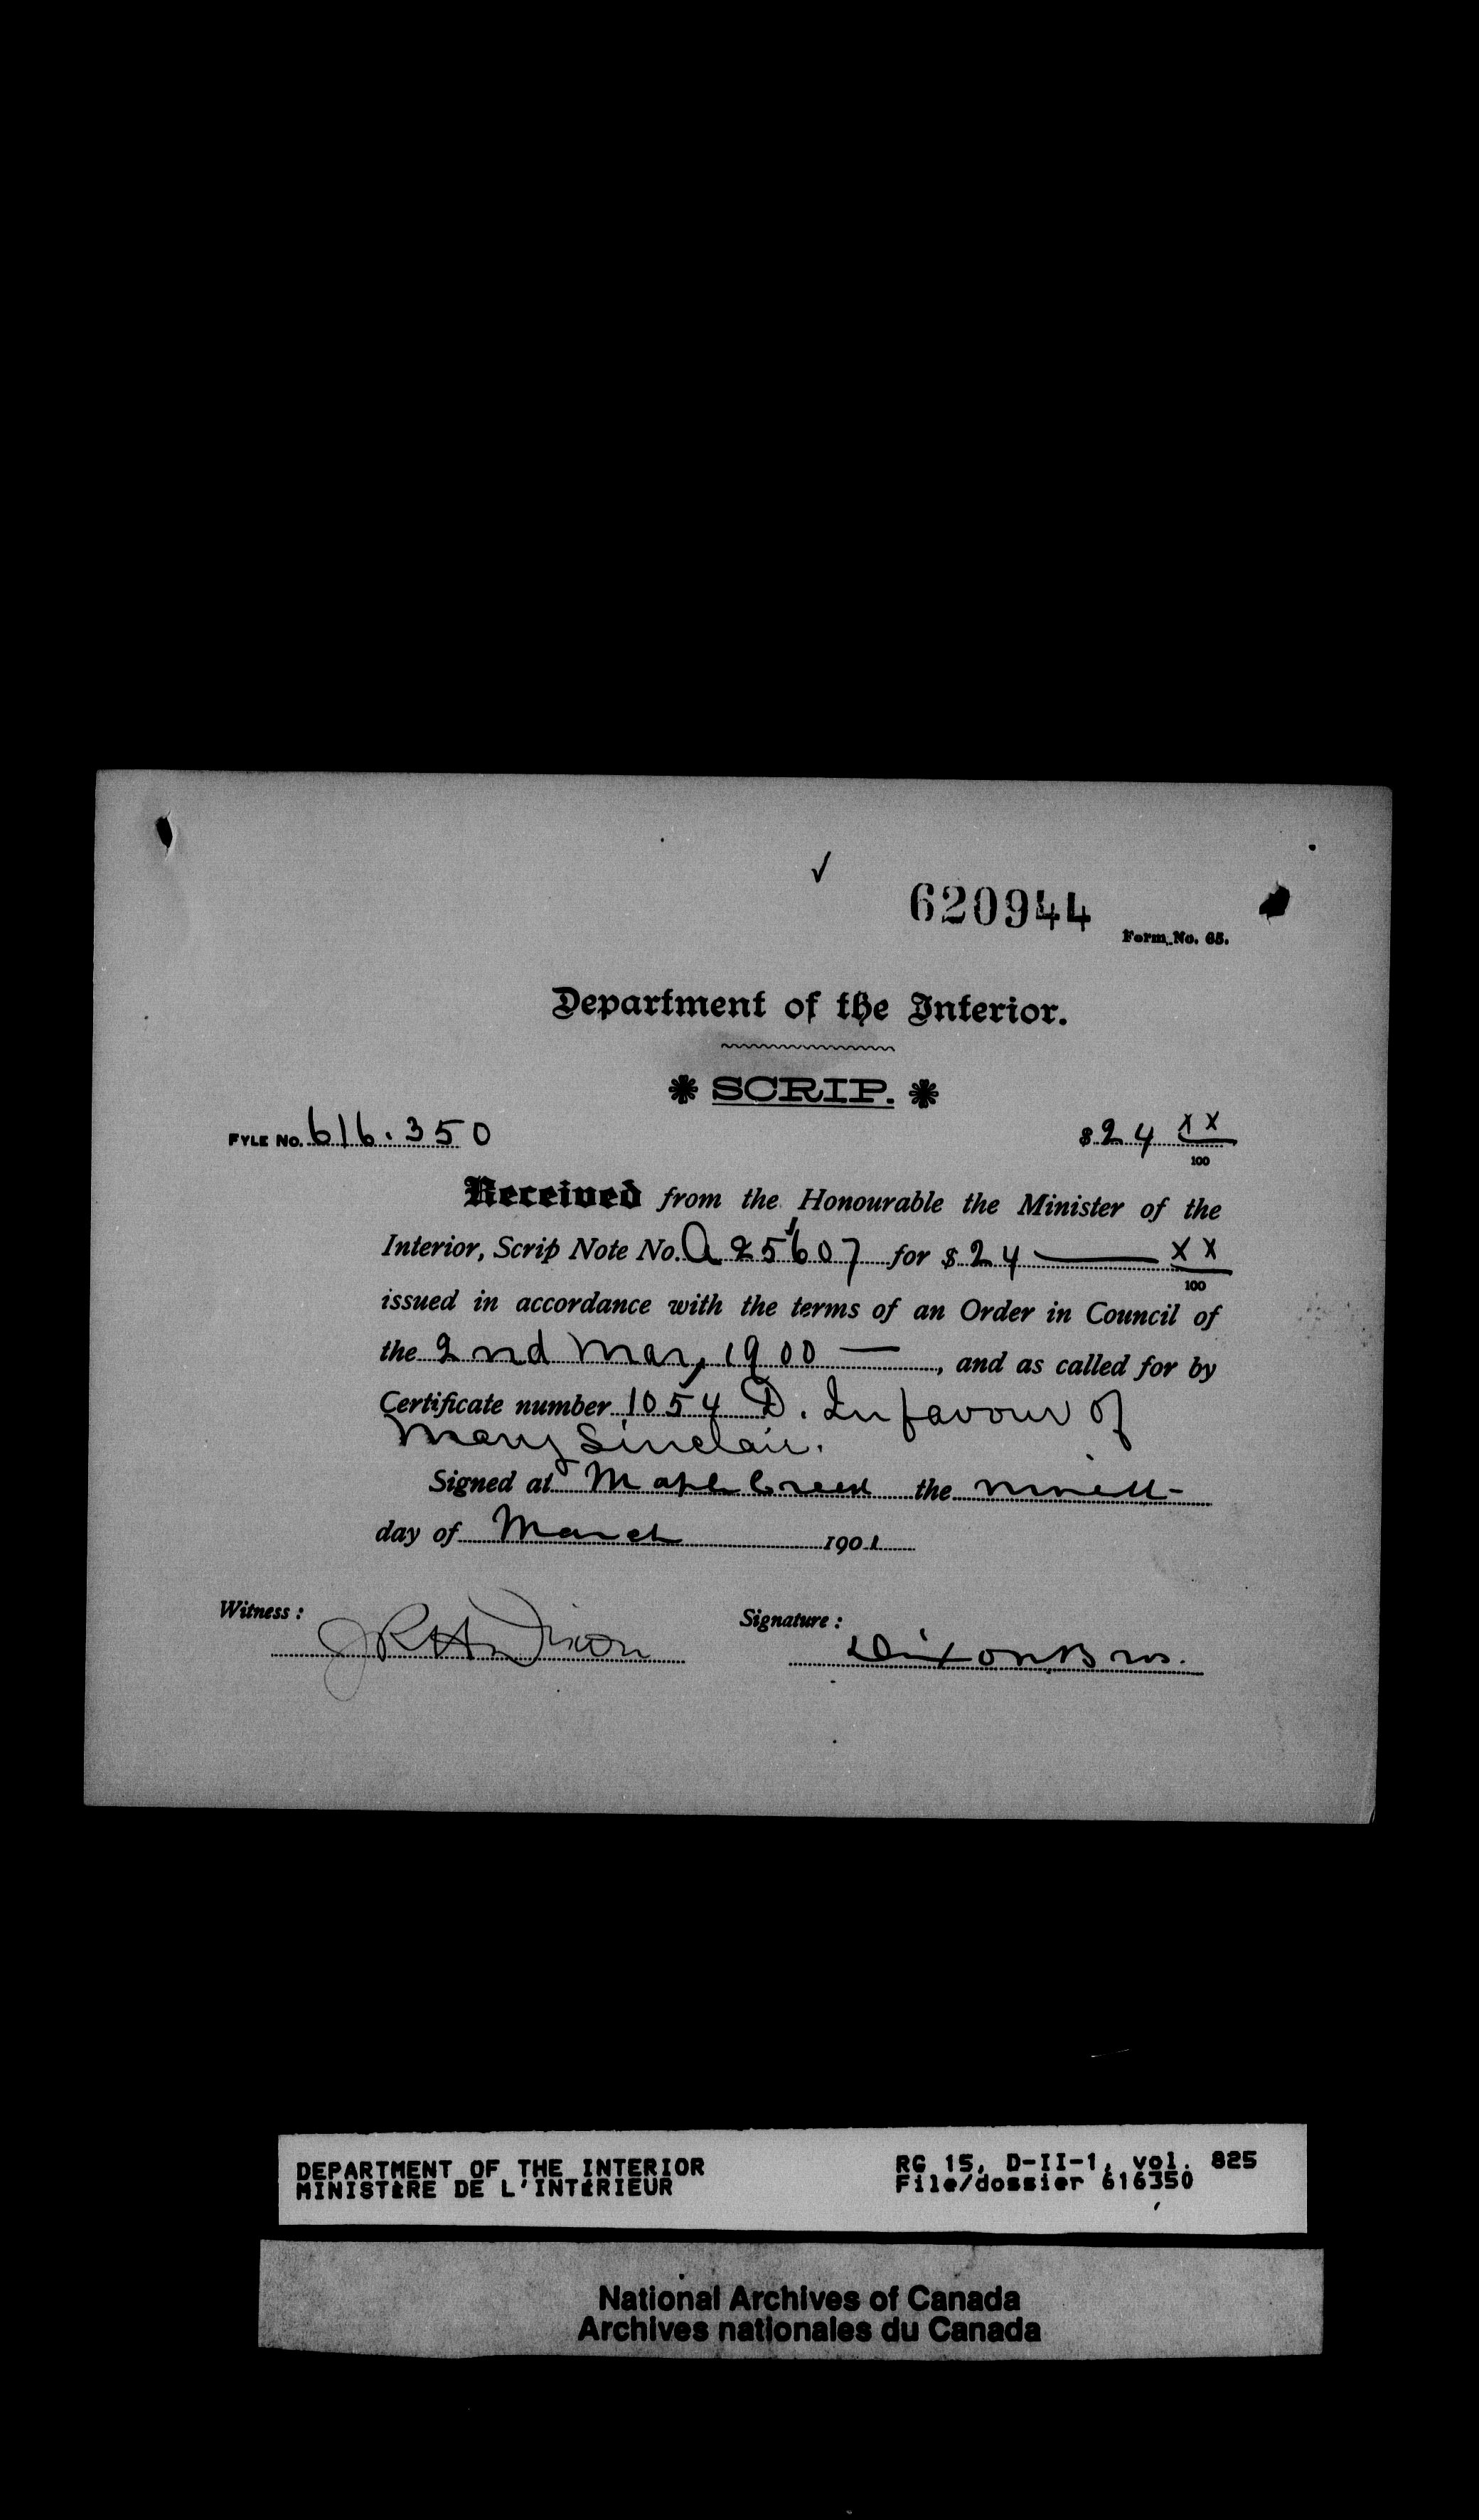 ✓
620944
Form No. 65.
Department of the Interior.
* SCRIP. *
FYLE No. 616.350
$ 24 xx/100
Received from the Honourable the Minister of the
Interior, Scrip Note No. A 25607 for $ 24 — xx/100
issued in accordance with the terms of an Order in Council of
the 2nd Mar, 1900 —, and as called for by
Certificate number 1054 D. In favour of
Mary Sinclair.
Signed at Maple Creek the ninth
day of March 1901
Witness : Signature :
Dixon Dixon Bros.
DEPARTMENT OF THE INTERIOR
MINISTÈRE DE L'INTÉRIEUR
RG 15, D-II-1, vol. 825
File/dossier 616350
National Archives of Canada
Archives nationales du Canada